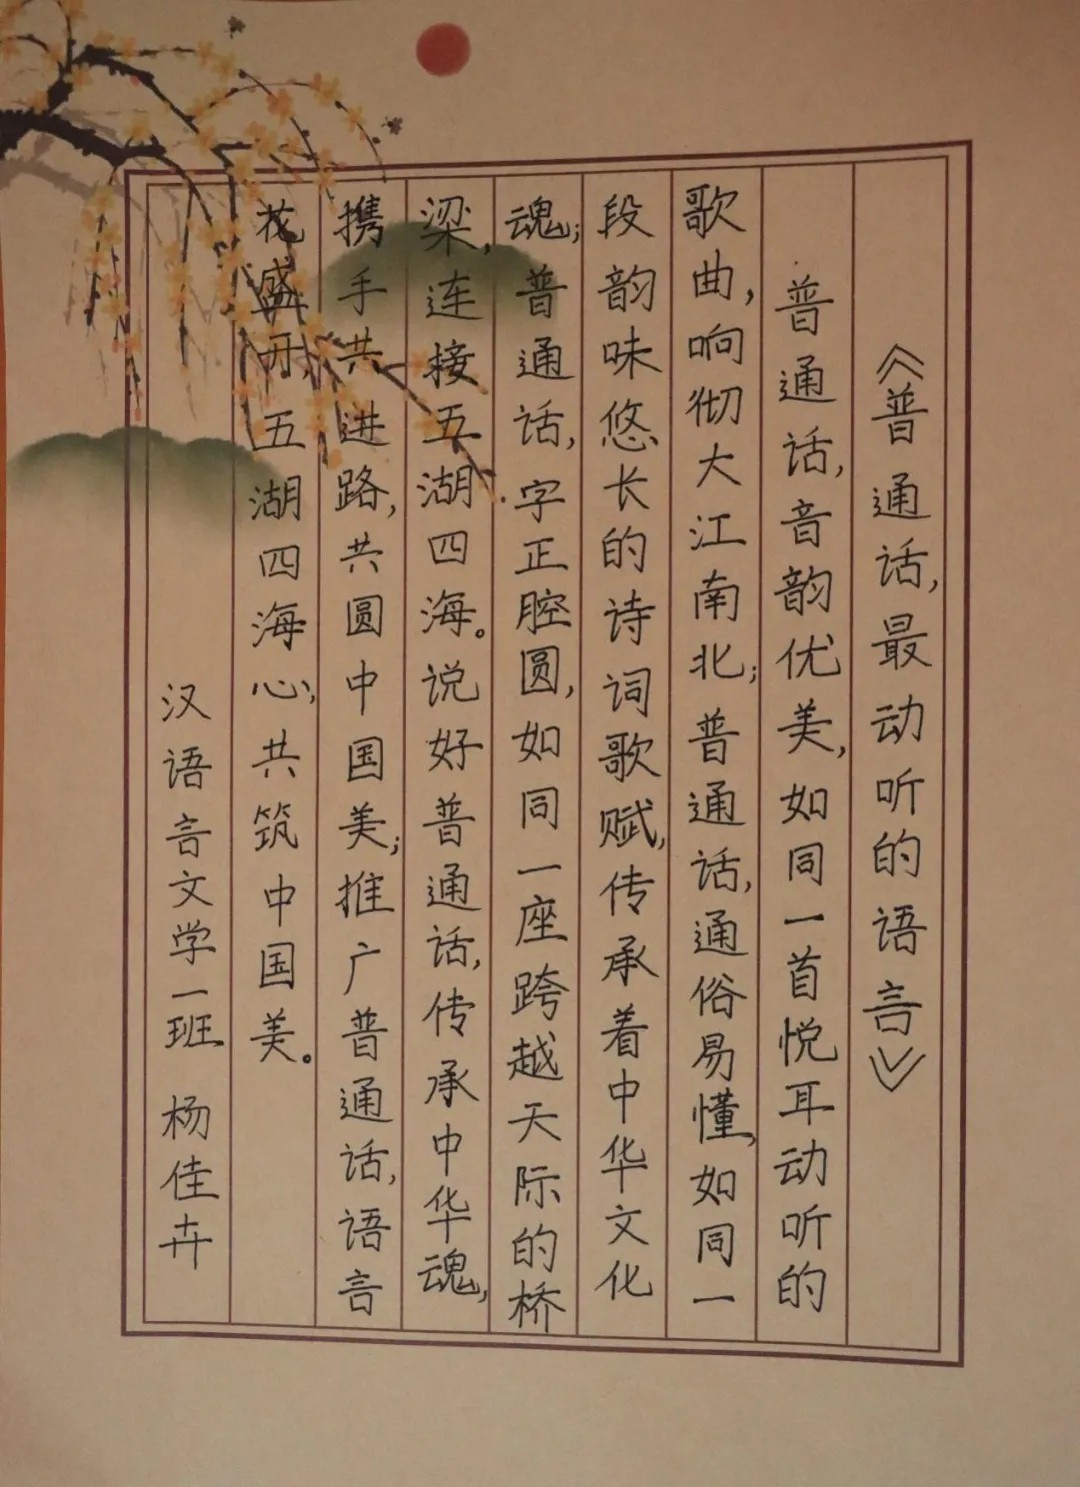 《普通话,最动听的语言》
普通话,音韵优美,如同一首悦耳动听的
歌曲,响彻大江南北;普通话,通俗易懂,如同一
段韵味悠长的诗词歌赋,传承着中华文化
魂;普通话,字正腔圆,如同一座跨越天际的桥
梁,连接五湖四海。说好普通话,传承中华魂,
携手共进路,共圆中国美;推广普通话,语言
花盛开,五湖四海心,共筑中国美。
汉语言文学一班 杨佳卉